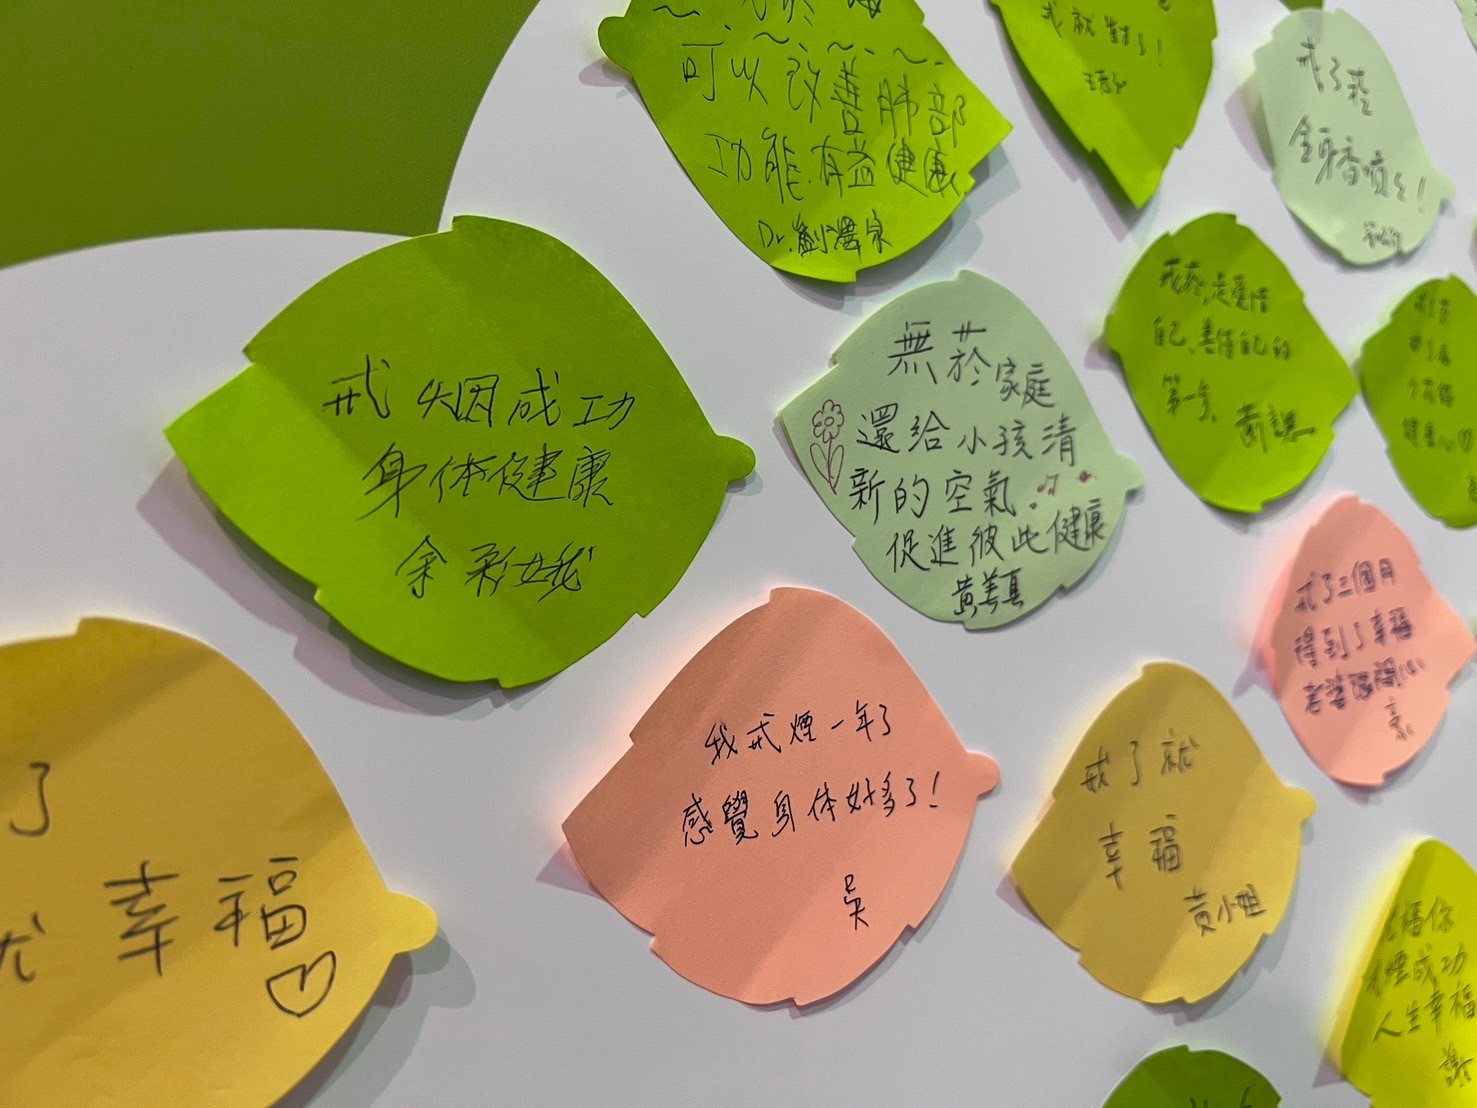 可以改善肺部
功能.有益健康
Dr.劉
就對了!
戒了菸
全身香噴
戒烟成功
身体健康
余彩娥
無菸家庭
還給小孩清
新的空氣.
促進彼此健康
黃美真
戒菸,是愛惜
自己、善待自己的
第一步、
戒了三個月
得到了幸福
老婆很開心
我戒煙一年了
感覺身体好多了!
吳
戒了就
幸福
黃小姐
了
就幸福
祝福你
戒煙成功
人生幸福
謝